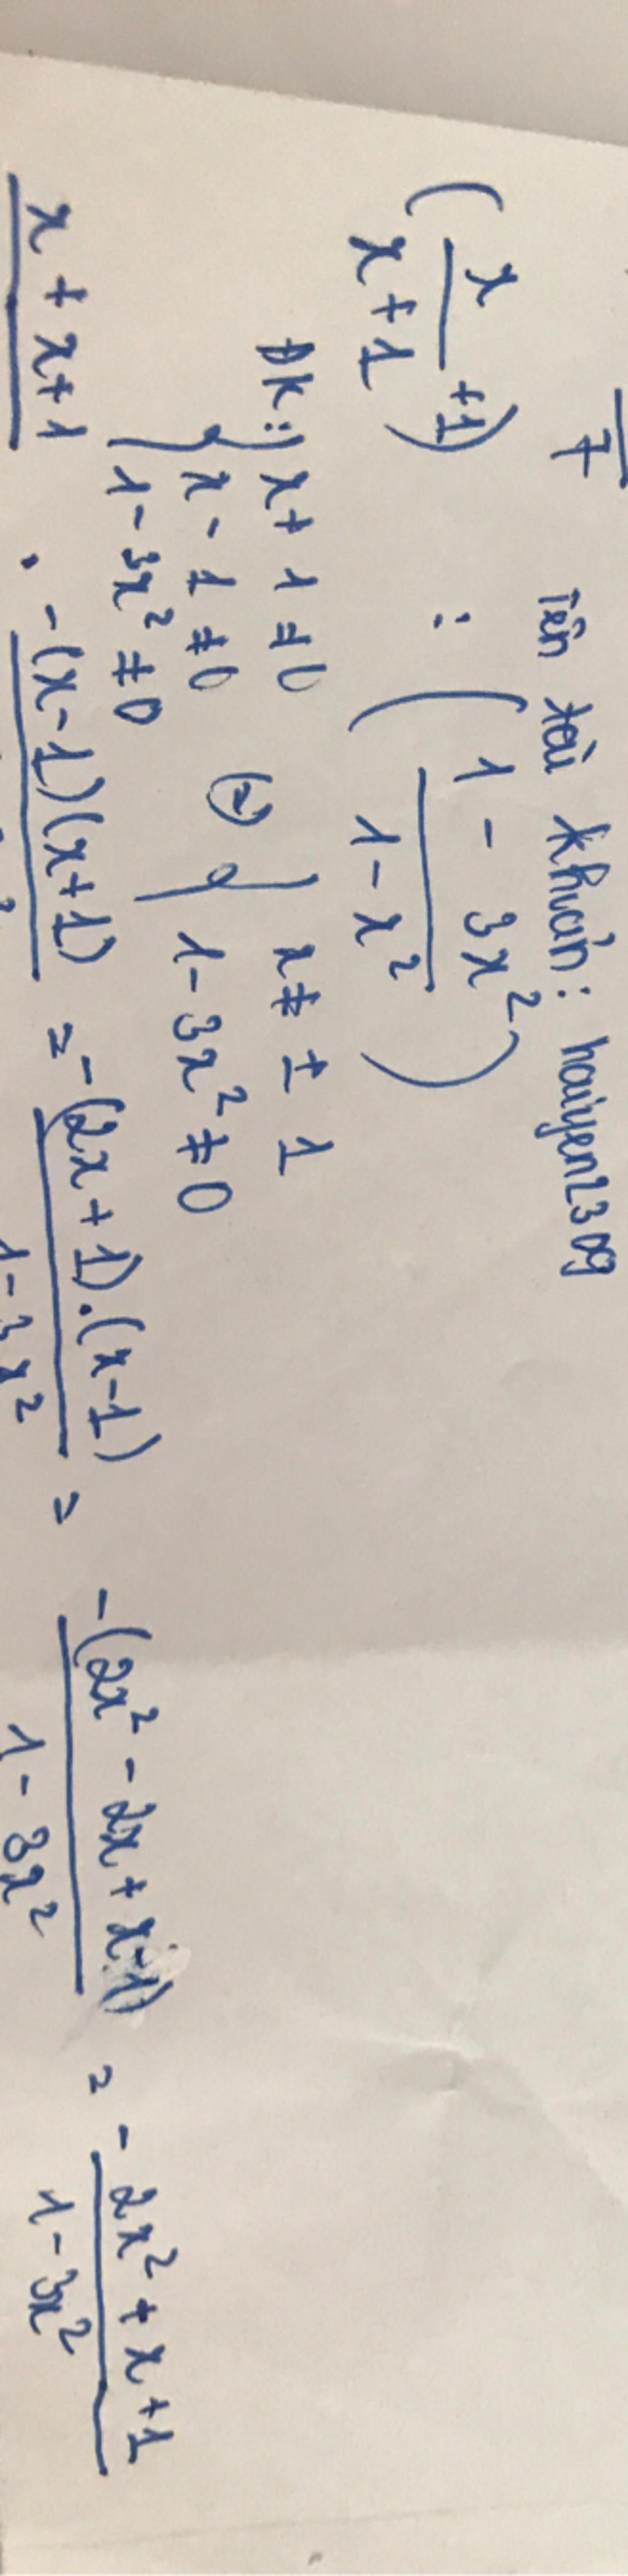 7 Tên tài khoản: haiyen2309
( x / x+1 +1) : ( 1 - 3x² / 1 - x² )
ĐK: { x + 1 ≠ 0
x - 1 ≠ 0 (=) { x ≠ ± 1
1 - 3x² ≠ 0 1 - 3x² ≠ 0
x + x+1 . -(x-1)(x+1) = -(2x+1).(x-1) / 1-3x² = -(2x² - 2x + x-1) / 1 - 3x² = - 2x² + x +1 / 1 - 3x²